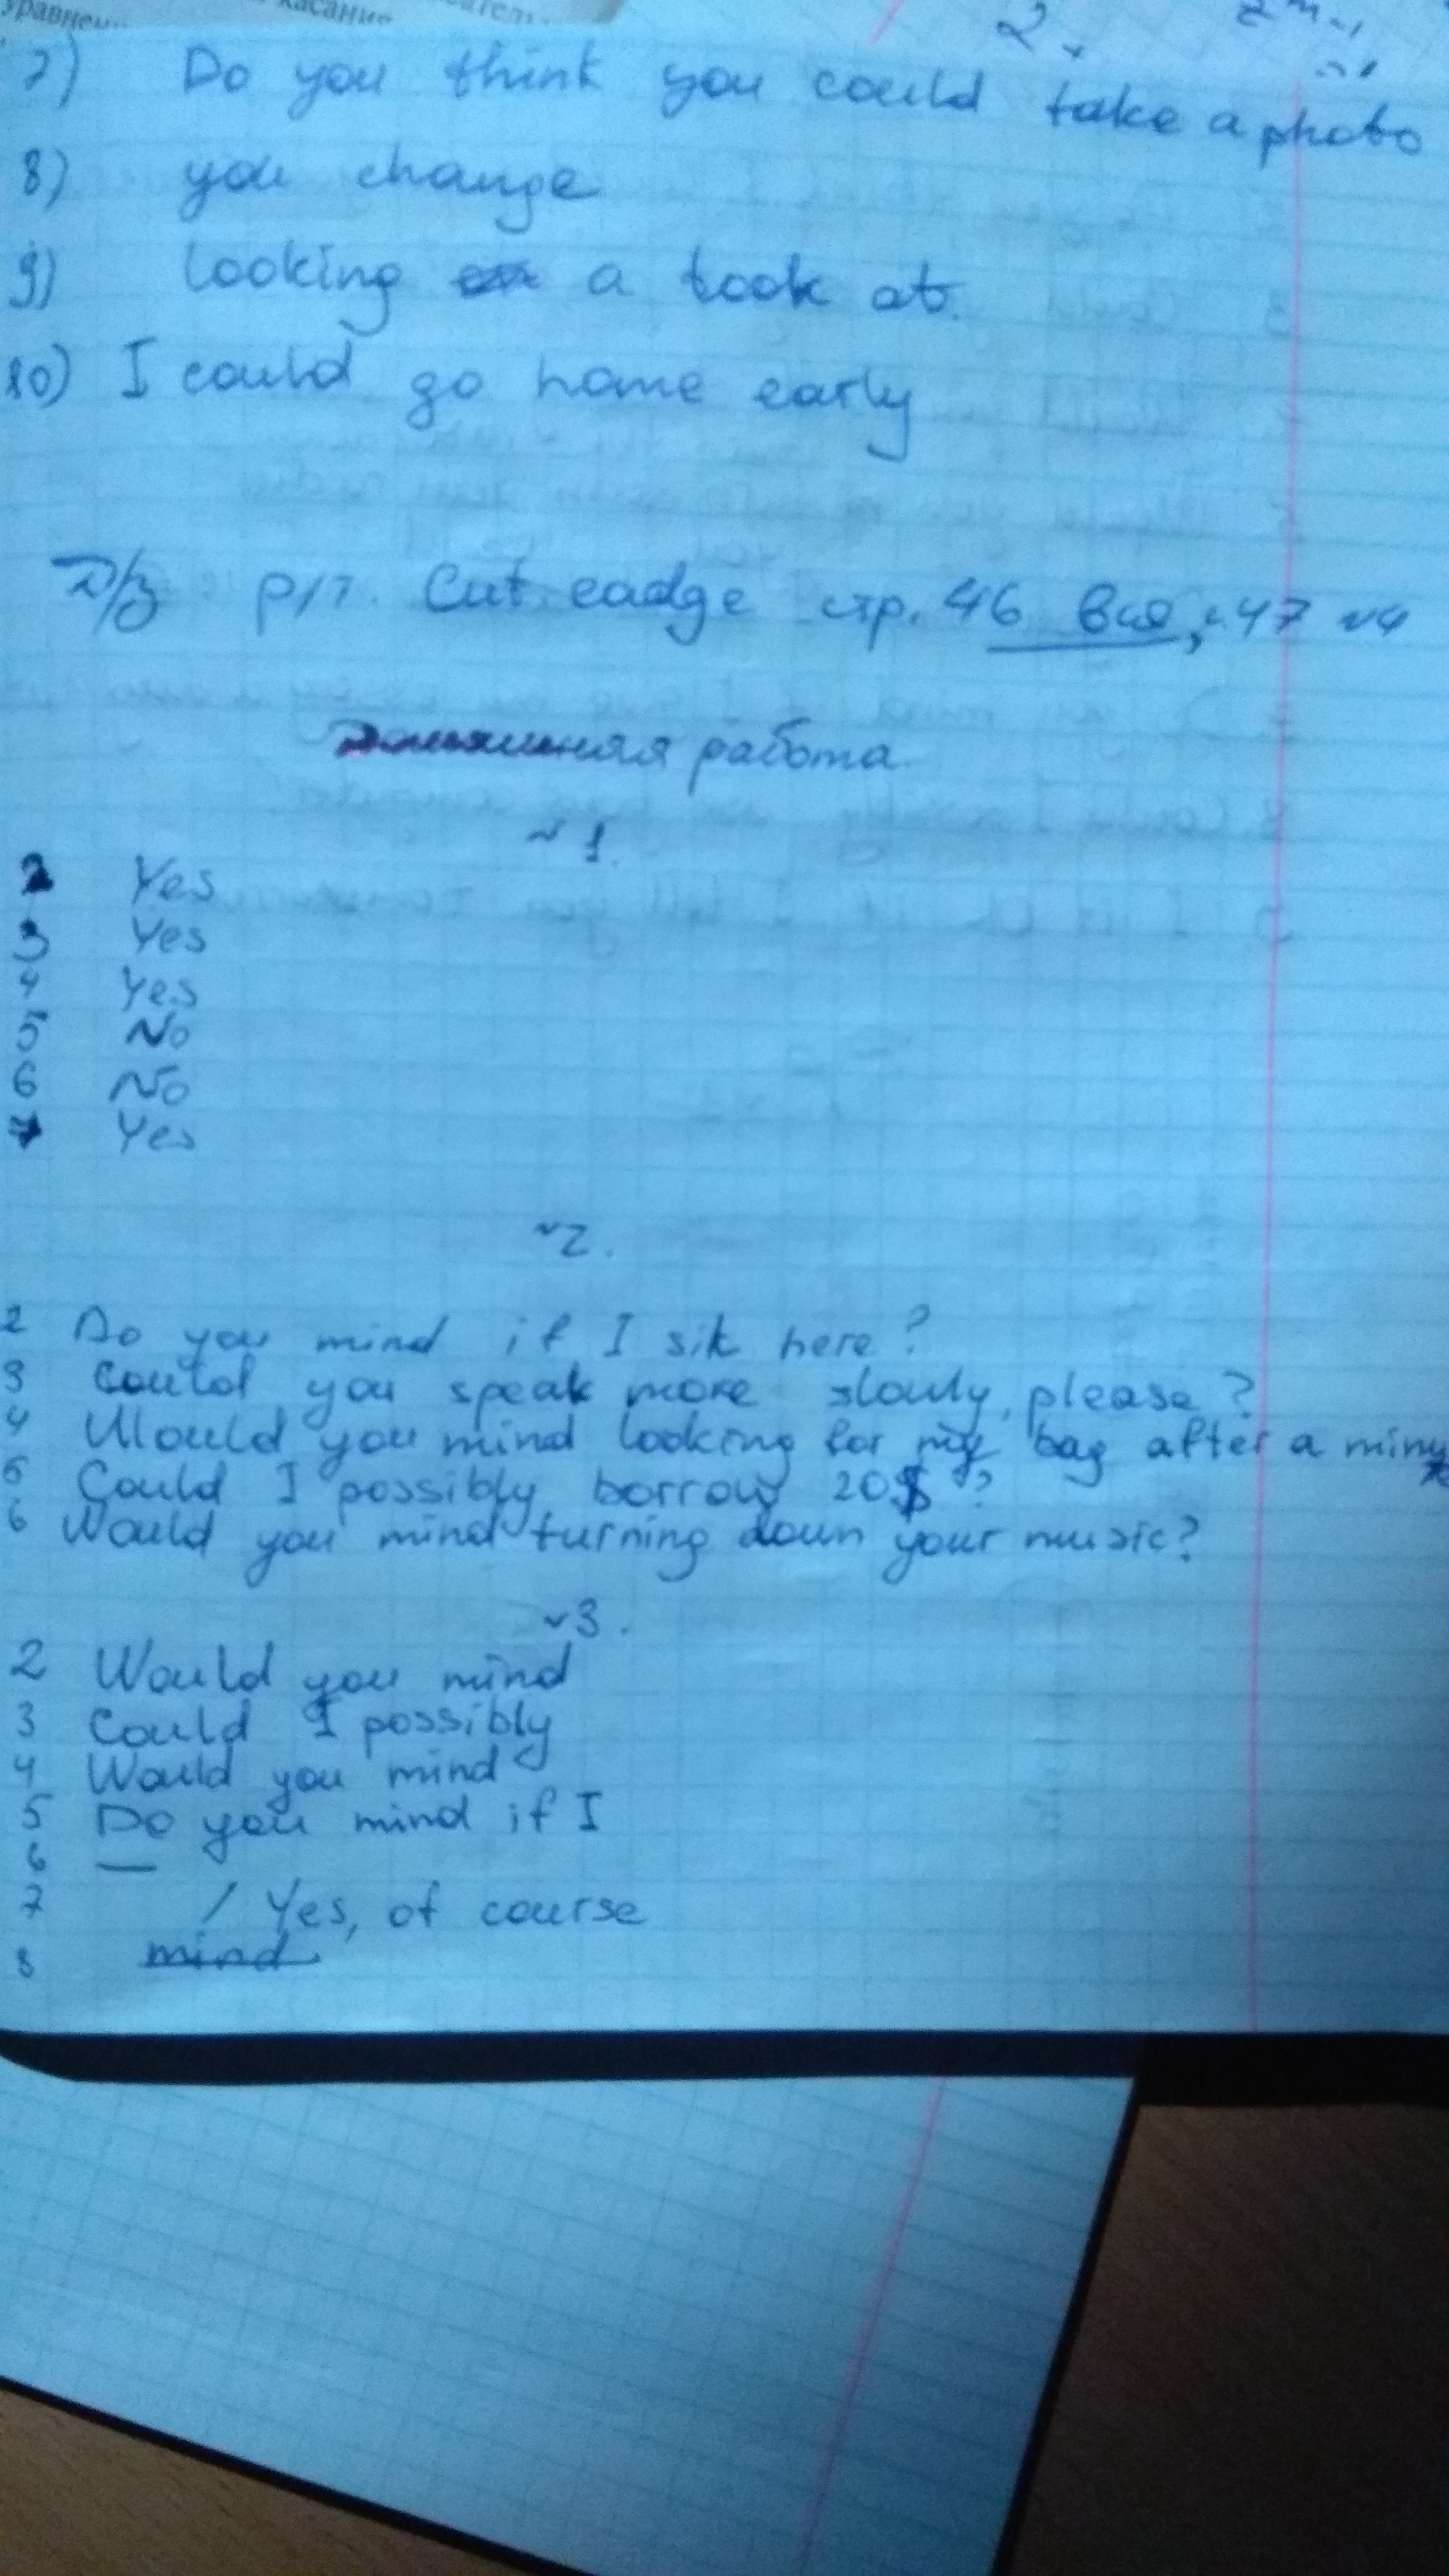 уравнен касание
2
7) Do you think you could take a photo
8) you change
9) looking a took at.
10) I could go home early
Д/з р/т. Cut eadge стр. 46 вся, с. 47 №4
Домашняя работа.
№1.
2 Yes
3 Yes
4 Yes
5 No
6 No
7 Yes
№2.
2 Do you mind if I sik here?
3 Could you speak more slowly, please?
4 Would you mind looking for my bag after a minu
5 Could I possibly borrow 20$?
6 Would you mind turning down your music?
№3.
2 Would you mind
3 Could I possibly
4 Would you mind
5 Do you mind if I
6 —
7 / Yes, of course
8 mind